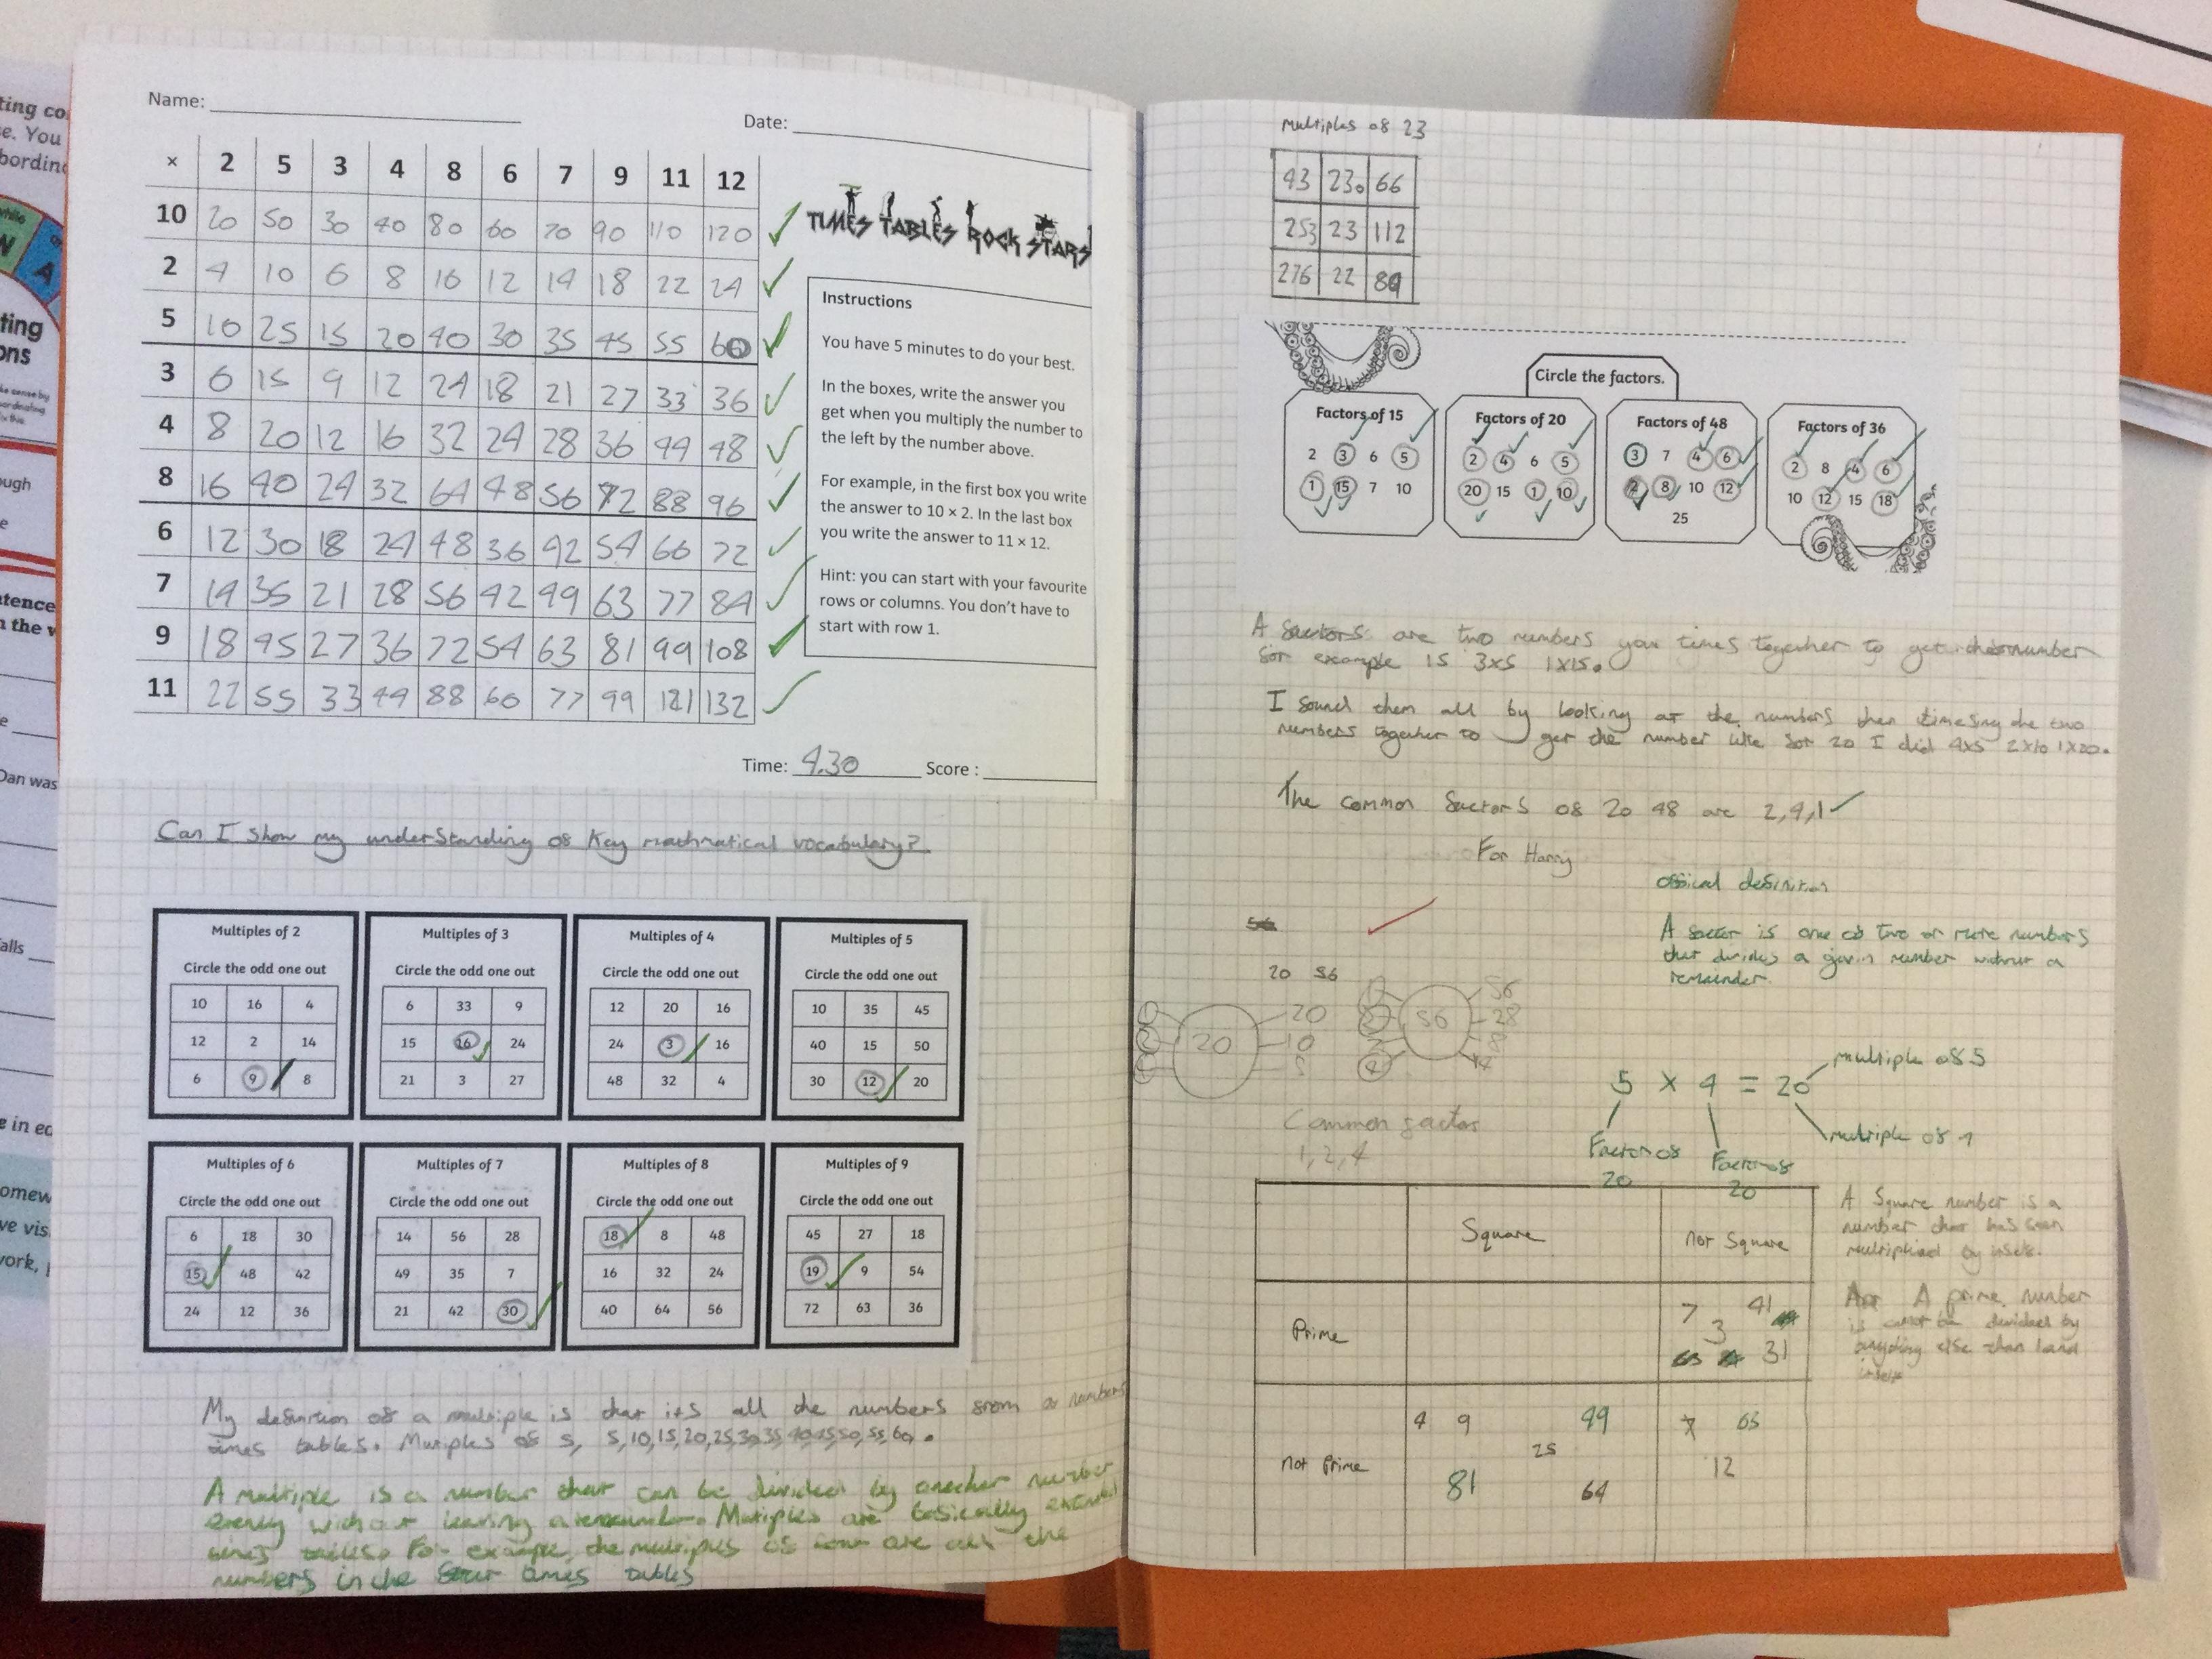 ting co
e. You
bording
while
N
A
ting
ons
ough
e
tence
n the w
e
Dan was
alls
e in ec
omew
ve vis
work, p
Name:
Date:
× 2 5 3 4 8 6 7 9 11 12
10 20 50 30 40 80 60 70 90 110 120
2 4 10 6 8 16 12 14 18 22 24
5 10 25 15 20 40 30 35 45 55 60
3 6 15 9 12 24 18 21 27 33 36
4 8 20 12 16 32 24 28 36 44 48
8 16 40 24 32 64 48 56 72 88 96
6 12 30 18 24 48 36 42 54 66 72
7 14 35 21 28 56 42 49 63 77 84
9 18 45 27 36 72 54 63 81 99 108
11 22 55 33 44 88 60 77 99 121 132
TIMES TABLES ROCK STARS
Instructions
You have 5 minutes to do your best.
In the boxes, write the answer you
get when you multiply the number to
the left by the number above.
For example, in the first box you write
the answer to 10 × 2. In the last box
you write the answer to 11 × 12.
Hint: you can start with your favourite
rows or columns. You don't have to
start with row 1.
Time: 4.30 Score :
Can I show my understanding of Key mathmatical vocabulary?
Multiples of 2
Circle the odd one out
10 16 4
12 2 14
6 9 8
Multiples of 3
Circle the odd one out
6 33 9
15 16 24
21 3 27
Multiples of 4
Circle the odd one out
12 20 16
24 3 16
48 32 4
Multiples of 5
Circle the odd one out
10 35 45
40 15 50
30 12 20
Multiples of 6
Circle the odd one out
6 18 30
15 48 42
24 12 36
Multiples of 7
Circle the odd one out
14 56 28
49 35 7
21 42 30
Multiples of 8
Circle the odd one out
18 8 48
16 32 24
40 64 56
Multiples of 9
Circle the odd one out
45 27 18
19 9 54
72 63 36
My definition of a multiple is that its all the numbers from a numbers
times tables. Multiples of 5, 5,10,15,20,25,30,35,40,45,50,55,60.
A multiple is a number that can be divided by another number
evenly without leaving a remainder. Multiples are basically extended
times tables. For example, the multiples of four are all the
numbers in the four times tables
multiples of 23
43 230 66
253 23 112
276 22 89
Circle the factors.
Factors of 15
2 3 6 5
1 15 7 10
Factors of 20
2 4 6 5
20 15 1 10
Factors of 48
3 7 4 6
2 8 10 12
25
Factors of 36
2 8 4 6
10 12 15 18
A factors are two numbers you times together to get number
for example 15 3x5 1x15.
I found them all by looking at the numbers then timesing the two
numbers together to get the number like for 20 I did 4x5 2x10 1x20.
The common factors of 20 48 are 2,4,1
For Harry
offical definition
A factor is one of two or more numbers
that divides a given number without a
remainder.
20 56
1 20 20
2 10
4 5
1 56 56
2 28
4 14
Common factor
1, 2, 4
5 × 4 = 20
multiple of 5
multiple of 4
Factor of 20
Factor of 20
Square
not Square
Prime
7 41
3
31
not Prime
4 9 49
25
81 64
63
12
A Square number is a
number that has been
multiplied by itself.
A prime number
is cannot be divided by
anything else than 1 and
itself